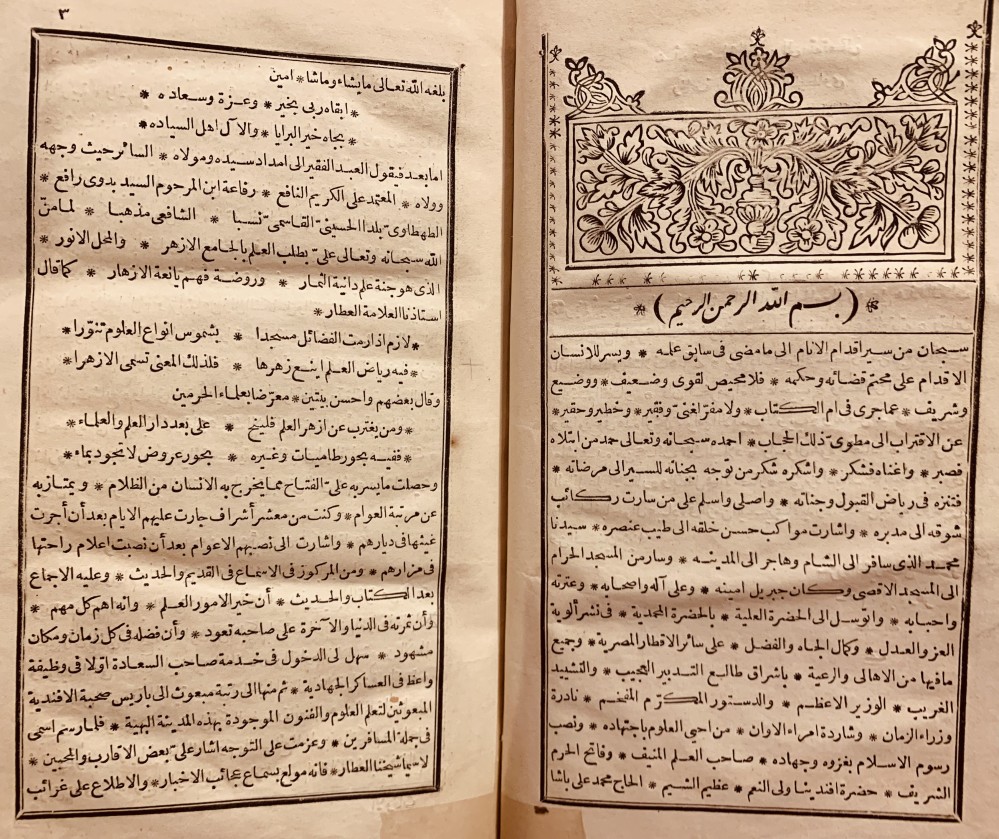 (بسم الله الرحمن الرحيم)
سبحان من سير اقدام الانام الى ما مضى فى سابق علمه * ويسر للانسان
الاقدام على محتم قضائه وحكمه * فلا محيص لقوى وضعيف * ووضيع
وشريف * عما جرى فى ام الكتاب * ولا مفر لغنى وفقير * وخطير وحقير *
عن الاقتراب الى مطوى ذلك الحجاب * احمده سبحانه وتعالى حمد من ابتلاه
فصبر * واغناه فشكر * واشكره شكر من توجه بجنانه للسير الى مرضاته *
فتنزه فى رياض القبول وجناته * واصلى واسلم على من سارت ركائب
شوقه الى مدبره * واشارت مواكب حسن خلقه الى طيب عنصره * سيدنا
محمد الذى سافر الى الشام وهاجر الى المدينه * وسار من المسجد الحرام
الى المسجد الاقصى وكان جبريل امينه * وعلى آله واصحابه * وعترته
واحبابه * واتوسل الى الحضرة العلية * بالحضرة المحمدية * فى نشر ألوية
العز والعدل * وكمال الجاه والفضل * على سائر الاقطار المصريه * وجميع
ما فيها من الاهالى والرعية * باشراق طالع التدبير العجيب * والتشييد
الغريب * الوزير الاعظم * والدستور المكرم المفخم * نادرة
وزراء الزمان * وشاردة امراء الاوان * من احيى العلوم باجتهاده * ونصب
رسوم الاسلام بغزوه وجهاده * صاحب العلم المنيف * وفاتح الحرم
الشريف * حضرة افندينا ولى النعم * عظيم الشيم * الحاج محمد على باشا
٣
بلغه الله تعالى ما يشاء وما شا * امين
* ابقاه ربى بخير * وعزة وسعاده *
* بجاه خير البرايا * والآل اهل السياده *
اما بعد فيقول العبد الفقير الى امداد سيده ومولاه * السائر حيث وجهه
وولاه * المعتمد على الكريم النافع * رفاعة ابن المرحوم السيد بدوى رافع *
الطهطاوى بلدا الحسينى القاسمى نسبا * الشافعى مذهبا * لما من
الله سبحانه وتعالى على بطلب العلم بالجامع الازهر * والمحل الانور *
الذى هو جنة علم دانية الثمار * وروضة فهم يانعة الازهار * كما قال
استاذنا العلامة العطار *
* لازم اذا رمت الفضائل مسجدا * بشموس انواع العلوم تنورا *
* فيه رياض العلم اينع زهرها * فلذلك المعنى تسمى الازهرا *
وقال بعضهم واحسن بيتين * معرضا بعلماء الحرمين
* ومن يغترب عن ازهر العلم فلينح * على بعد دار العلم والعلماء *
* ففيه بحور طاميات وغيره * بحور عروض لا يجود بماء *
وحصلت ما يسر به على الفتاح مما يخرج به الانسان من الظلام * ويمتاز به
عن مرتبة العوام * وكنت من معشر أشراف جارت عليهم الايام بعد أن أجرت
غيثها فى ديارهم * واشارت الى نصبهم الاعوام بعد أن نصبت اعلام راحتها
فى مزارهم * ومن المركوز فى الاسماع فى القديم والحديث * وعليه الاجماع
بعد الكتاب والحديث * أن خير الامور العلم * وانه اهم كل مهم *
وأن ثمرته فى الدنيا والآخرة على صاحبه تعود * وأن فضله فى كل زمان ومكان
مشهود * سهل لى الدخول فى خدمة صاحب السعادة اولا فى وظيفة
واعظ فى العساكر الجهادية * ثم منها الى رتبة مبعوث الى باريس صحبة الافندية
المبعوثين لتعلم العلوم والفنون الموجودة بهذه المدينة البهية * فلما رسم اسمى
فى جملة المسافرين * وعزمت على التوجه اشار على بعض الاقارب والمحبين *
لا سيما شيخنا العطار * فانه مولع بسماع عجائب الاخبار * والاطلاع على غرائب